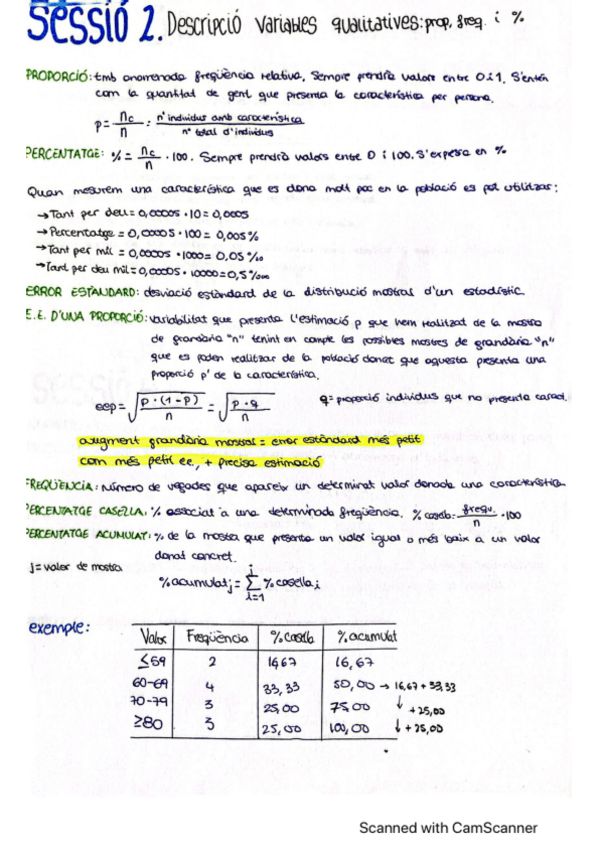 Sessió 2. Descripció variables qualitatives: prop, freq. i %
PROPORCIÓ: tmb anomenada freqüència relativa. Sempre prendrà valors entre 0 i 1. S'entén
com la quantitat de gent que presenta la característica per persona.
p = nc / n = nº individus amb característica / nº total d'individus
PERCENTATGE: % = nc / n · 100. Sempre prendrà valors entre 0 i 100. S'expresa en %
Quan mesurem una característica que es dona molt poc en la població es pot utilitzar:
→ Tant per deu = 0,00005 · 10 = 0,0005
→ Percentatge = 0,00005 · 100 = 0,005%
→ Tant per mil = 0,00005 · 1000 = 0,05 ‰
→ Tant per deu mil = 0,00005 · 10000 = 0,5 ‱
ERROR ESTÀNDARD: desviació estàndard de la distribució mostral d'un estadístic.
E.E. D'UNA PROPORCIÓ: variabilitat que presenta l'estimació p que hem realitzat de la mostra
de grandària "n" tenint en compte les possibles mostres de grandària "n"
que es poden realitzar de la població donat que aquesta presenta una
proporció p' de la característica.
eep = √(p · (1 - p) / n) = √(p · q / n) q = proporció individus que no presenta caract.
augment grandària mostral = error estàndard més petit
com més petit ee., + precisa estimació
FREQÜÈNCIA: Número de vegades que apareix un determinat valor donada una característica
PERCENTATGE CASELLA: % associat a una determinada freqüència. % casella: frequ. / n · 100
PERCENTATGE ACUMULAT: % de la mostra que presenta un valor igual o més baix a un valor
donat concret.
j = valor de mostra
% acumulat j = j Σ i=1 % casella i
exemple:
Valor Freqüència % casella % acumulat
≤59 2 1667 16,67
60-69 4 33,33 50,00 → 16,67 + 33,33
70-79 3 25,00 75,00 ↓ + 25,00
≥80 3 25,00 100,00 ↓ + 25,00
Scanned with CamScanner